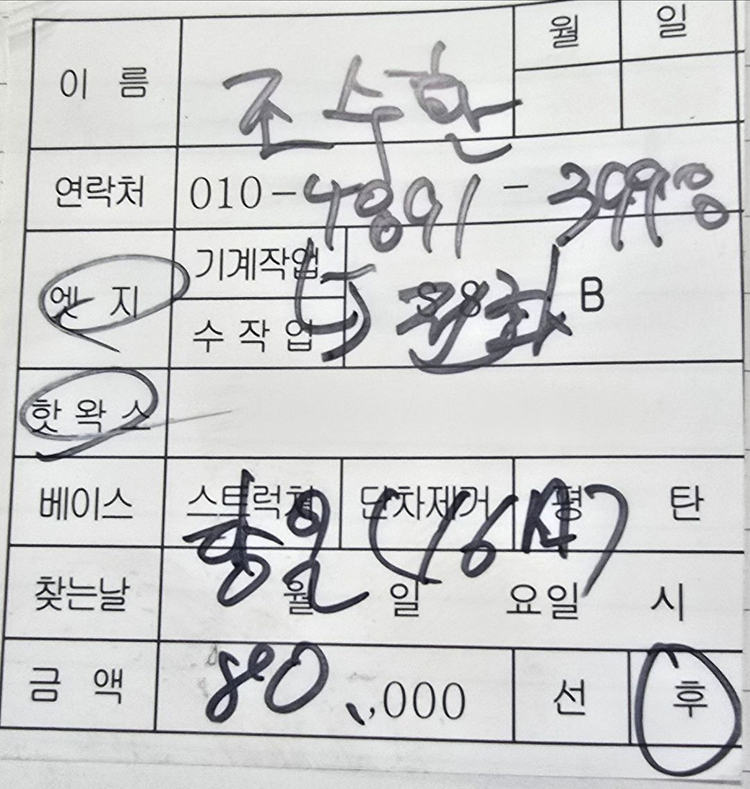 월 일
이 름 조수한
연락처 010-4891-3998
엣 지 기계작업 SS B
수작업
핫 왁 스
베이스 스트럭쳐 단차제거 평 탄
당일 (16시)
찾는날 월 일 요일 시
금 액 80,000 선 후